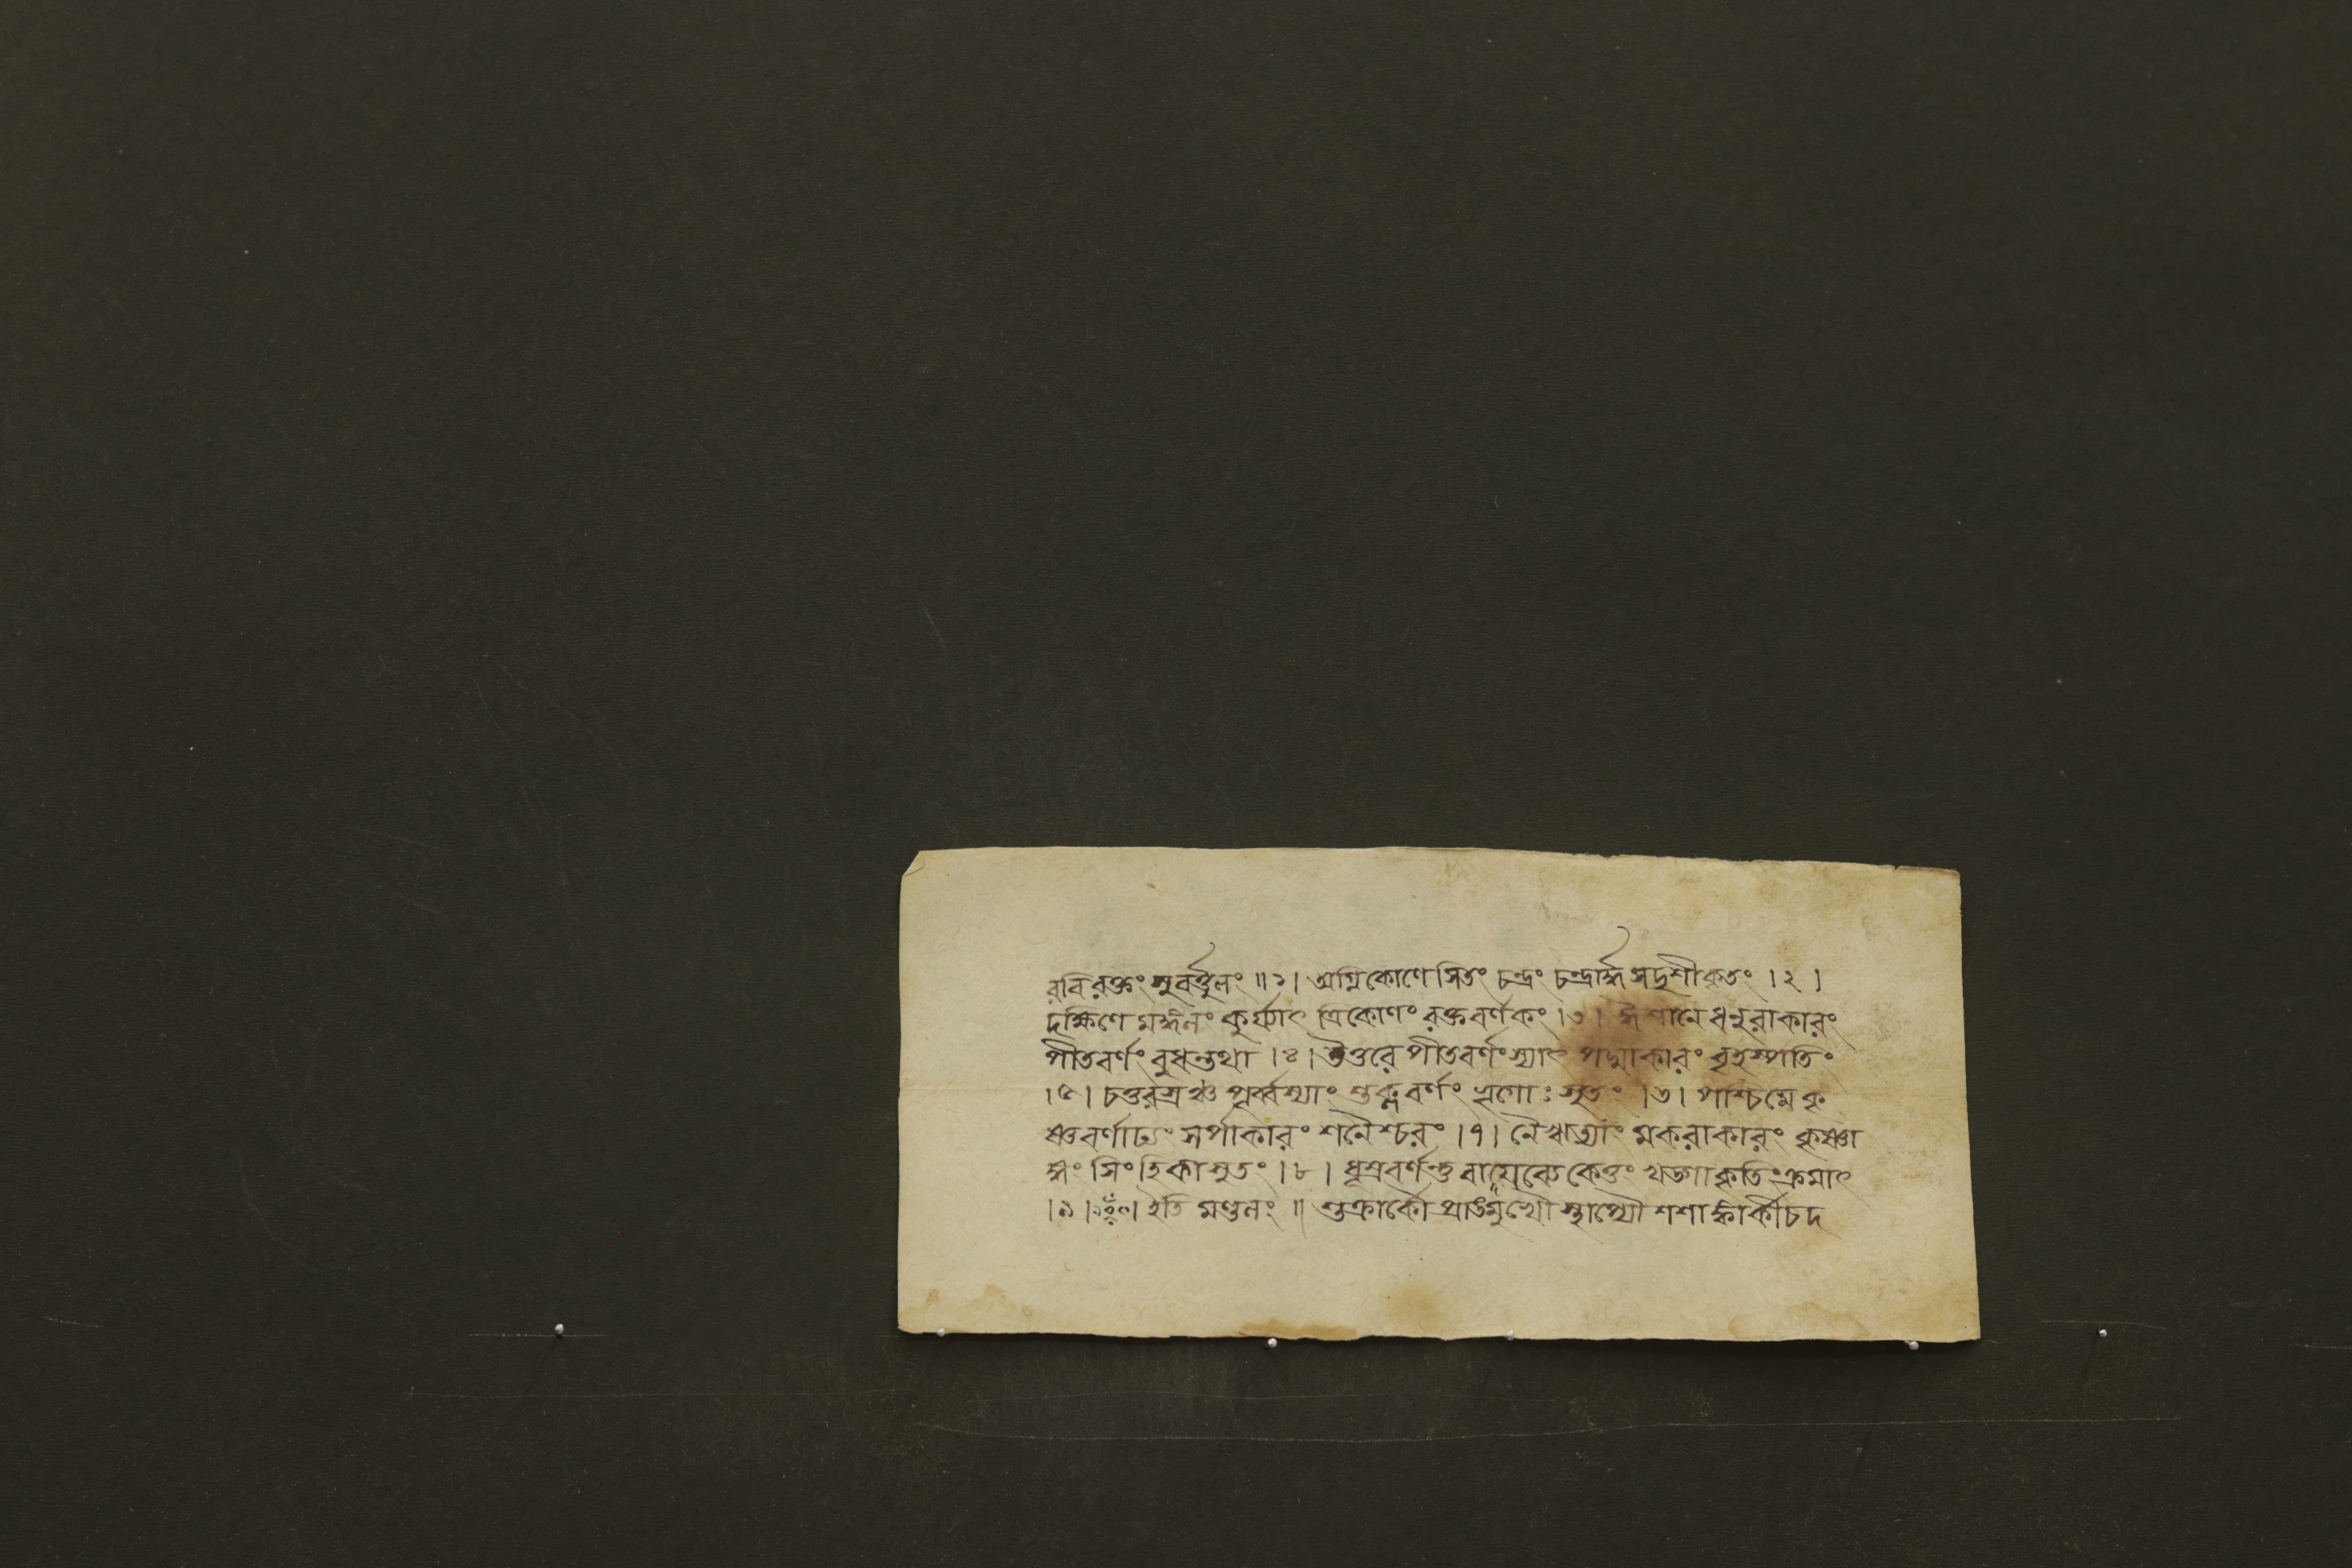 রবিরক্তং সুবর্ত্তুলং ॥১। অগ্নিকোণে সিতং চন্দ্রং চন্দ্রার্দ্ধসদৃশীকৃতং ।২।
দক্ষিণে মঙ্গলং কুর্য্যাৎ ত্রিকোণং রক্তবর্ণকং ।৩। ঈশানে ধনুরাকারং
পীতবর্ণং বুধন্তথা ।৪। উত্তরে পীতবর্ণং স্যাৎ পদ্মাকারং বৃহস্পতিং
।৫। চতুরস্রঞ্চ পূর্ব্বস্যাং শুক্লবর্ণং ভৃগোঃ সুতং ।৬। পশ্চিমে কৃ
ষ্ণবর্ণাঢ্যং সর্পাকারং শনৈশ্চরং ।৭। নৈঋত্যাং মকরাকারং কৃষ্ণা
ঙ্গং সিংহিকাসুতং ।৮। ধূম্রবর্ণন্তু বায়ব্যে কেতুং খড্গাকৃতিং ক্রমাৎ
।৯। ইতি মণ্ডলং ॥ শুক্রার্কৌ প্রাঙ্মুখৌ স্থাপ্যৌ শশাঙ্কার্কী চ দ